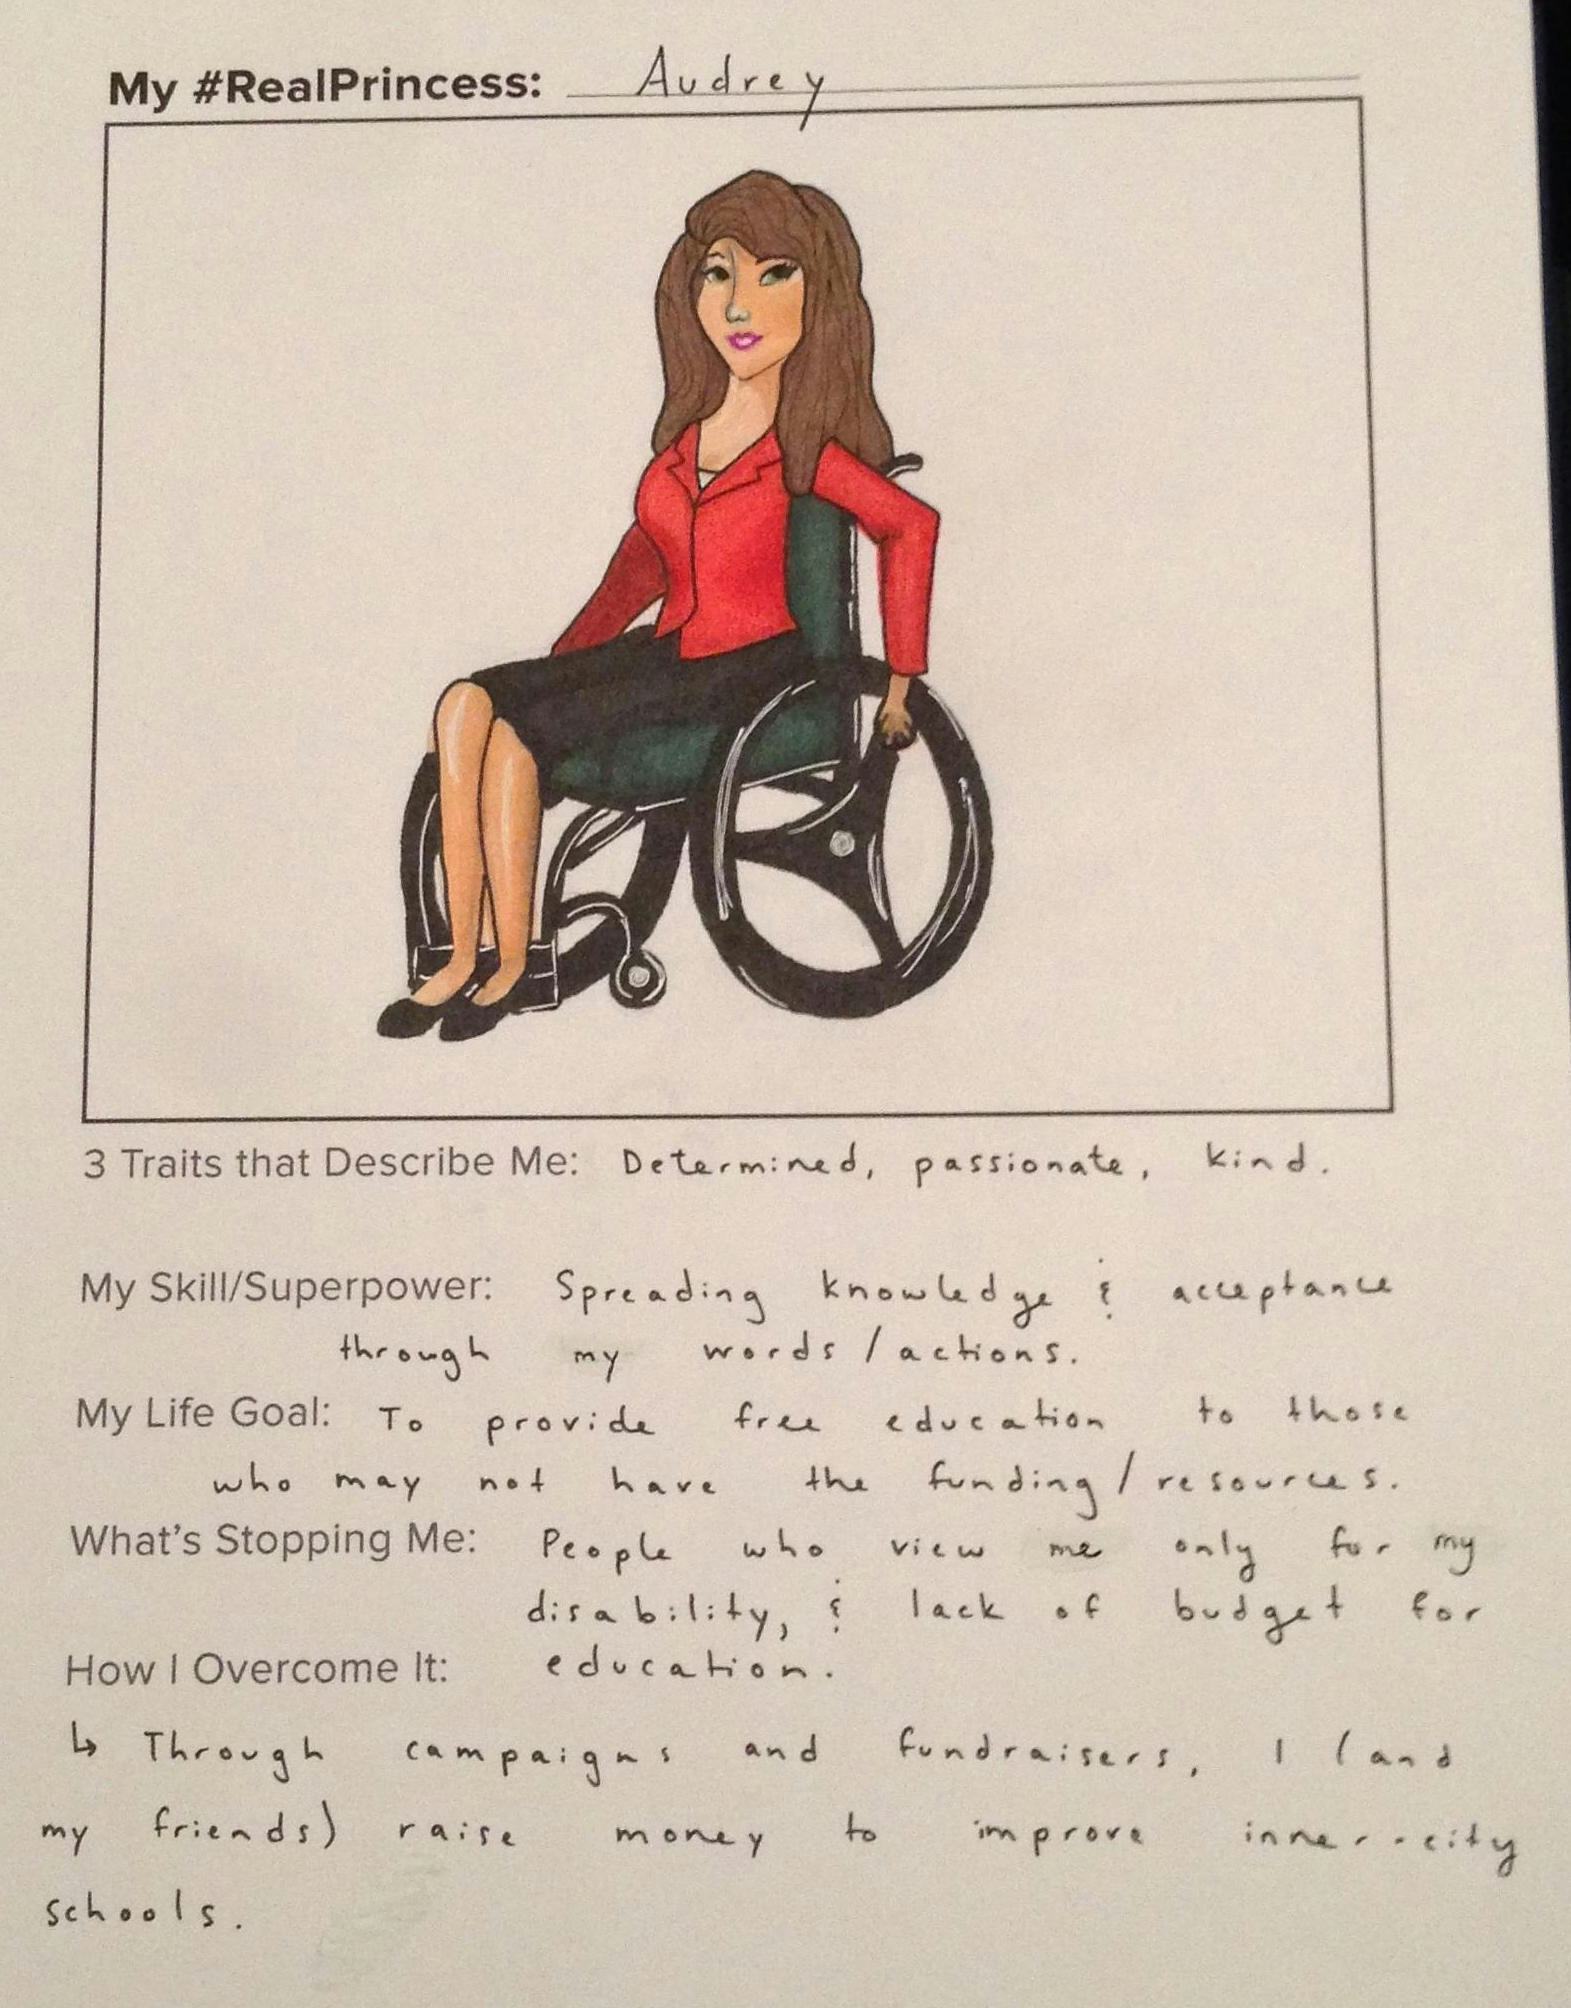 My #RealPrincess: Audrey
3 Traits that Describe Me: Determined, passionate, kind.
My Skill/Superpower: Spreading knowledge & acceptance
through my words/actions.
My Life Goal: To provide free education to those
who may not have the funding/resources.
What's Stopping Me: People who view me only for my
disability, & lack of budget for
How I Overcome It: education.
↳ Through campaigns and fundraisers, I (and
my friends) raise money to improve inner-city
schools.